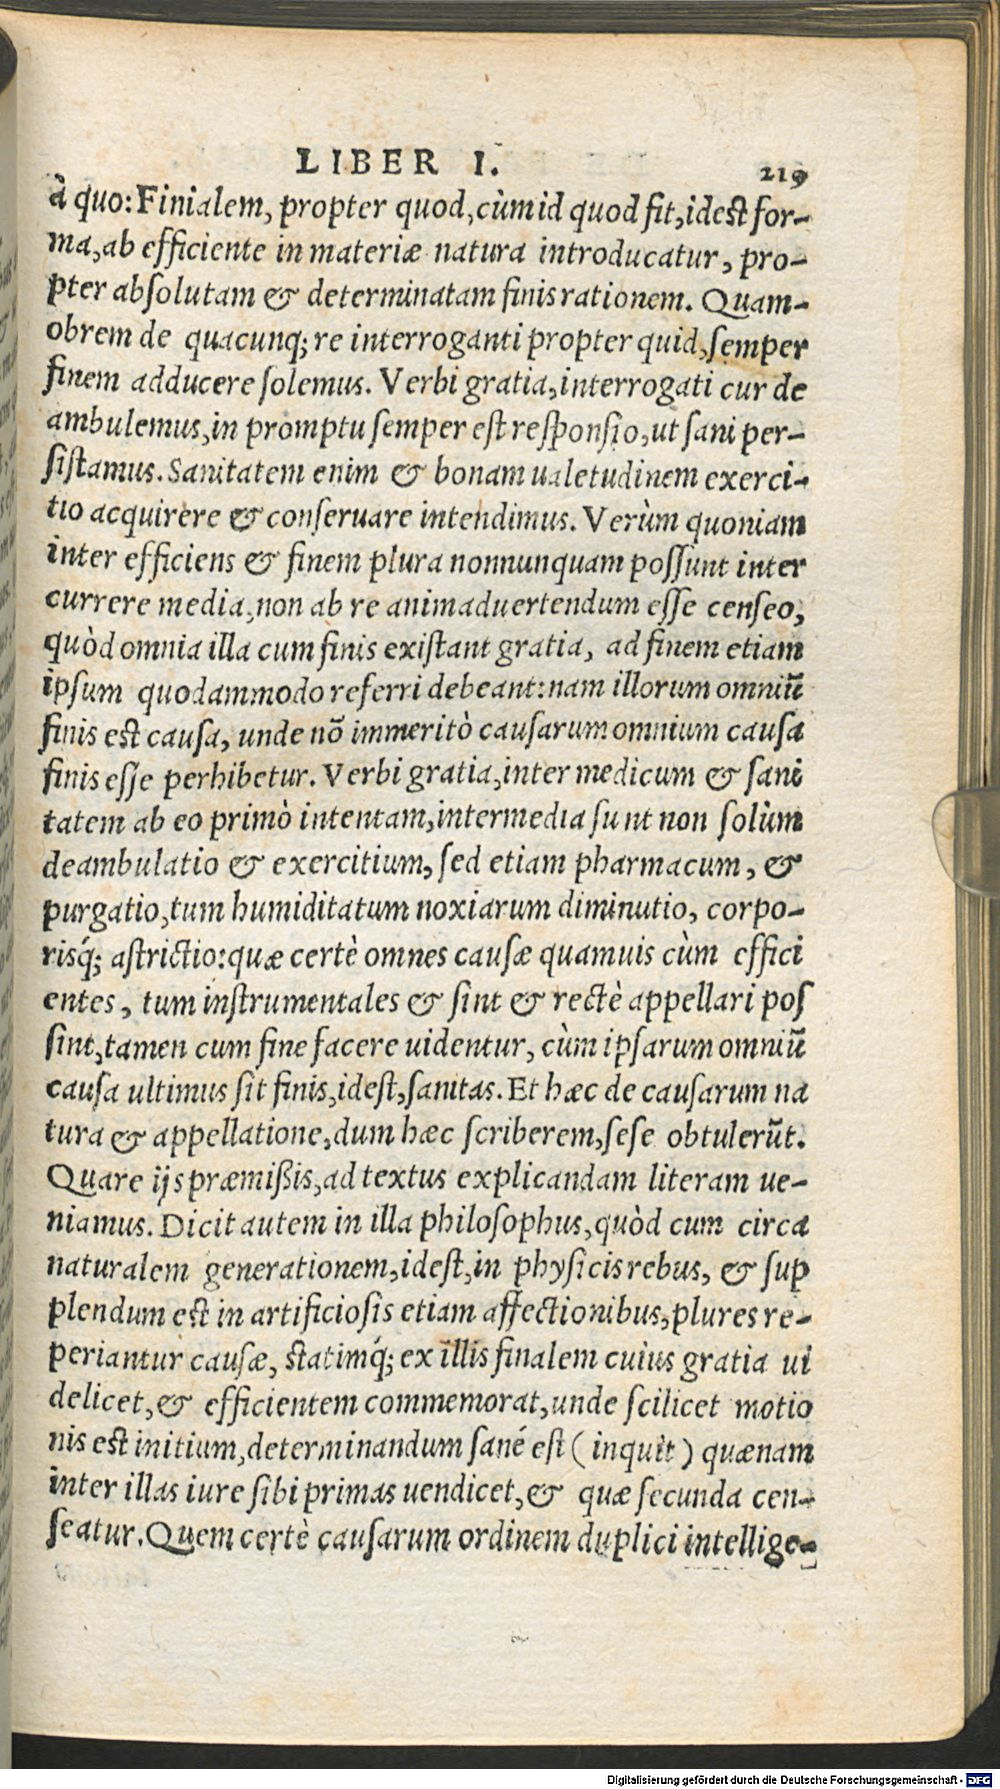 LIBER I. 219
à quo: Finialem, propter quod, cùm id quod fit, idest for-
ma, ab efficiente in materiæ natura introducatur, pro-
pter absolutam & determinatam finis rationem. Quam-
obrem de quacunq; re interroganti propter quid, semper
finem adducere solemus. Verbi gratia, interrogati cur de
ambulemus, in promptu semper est responsio, ut sani per-
sistamus. Sanitatem enim & bonam ualetudinem exerci-
tio acquirere & conseruare intendimus. Verùm quoniam
inter efficiens & finem plura nonnunquam possunt inter
currere media, non ab re animaduertendum esse censeo,
quòd omnia illa cum finis existant gratia, ad finem etiam
ipsum quodammodo referri debeant: nam illorum omniũ
finis est causa, unde nõ immeritò causarum omnium causa
finis esse perhibetur. Verbi gratia, inter medicum & sani
tatem ab eo primò intentam, intermedia sunt non solùm
deambulatio & exercitium, sed etiam pharmacum, &
purgatio, tum humiditatum noxiarum diminutio, corpo-
risq́; astrictio: quæ certè omnes causæ quamuis cùm effici
entes, tum instrumentales & sint & rectè appellari pos
sint, tamen cum fine facere uidentur, cùm ipsarum omniũ
causa ultimus sit finis, idest, sanitas. Et hæc de causarum na
tura & appellatione, dum hæc scriberem, sese obtulerũt.
Quare ijs præmißis, ad textus explicandam literam ue-
niamus. Dicit autem in illa philosophus, quòd cum circa
naturalem generationem, idest, in physicis rebus, & sup
plendum est in artificiosis etiam affectionibus, plures re-
periantur causæ, statimq́; ex illis finalem cuius gratia ui
delicet, & efficientem commemorat, unde scilicet motio
nis est initium, determinandum sané est ( inquit ) quænam
inter illas iure sibi primas uendicet, & quæ secunda cen-
seatur. Quem certè causarum ordinem duplici intellige-
Digitalisierung gefördert durch die Deutsche Forschungsgemeinschaft - DFG